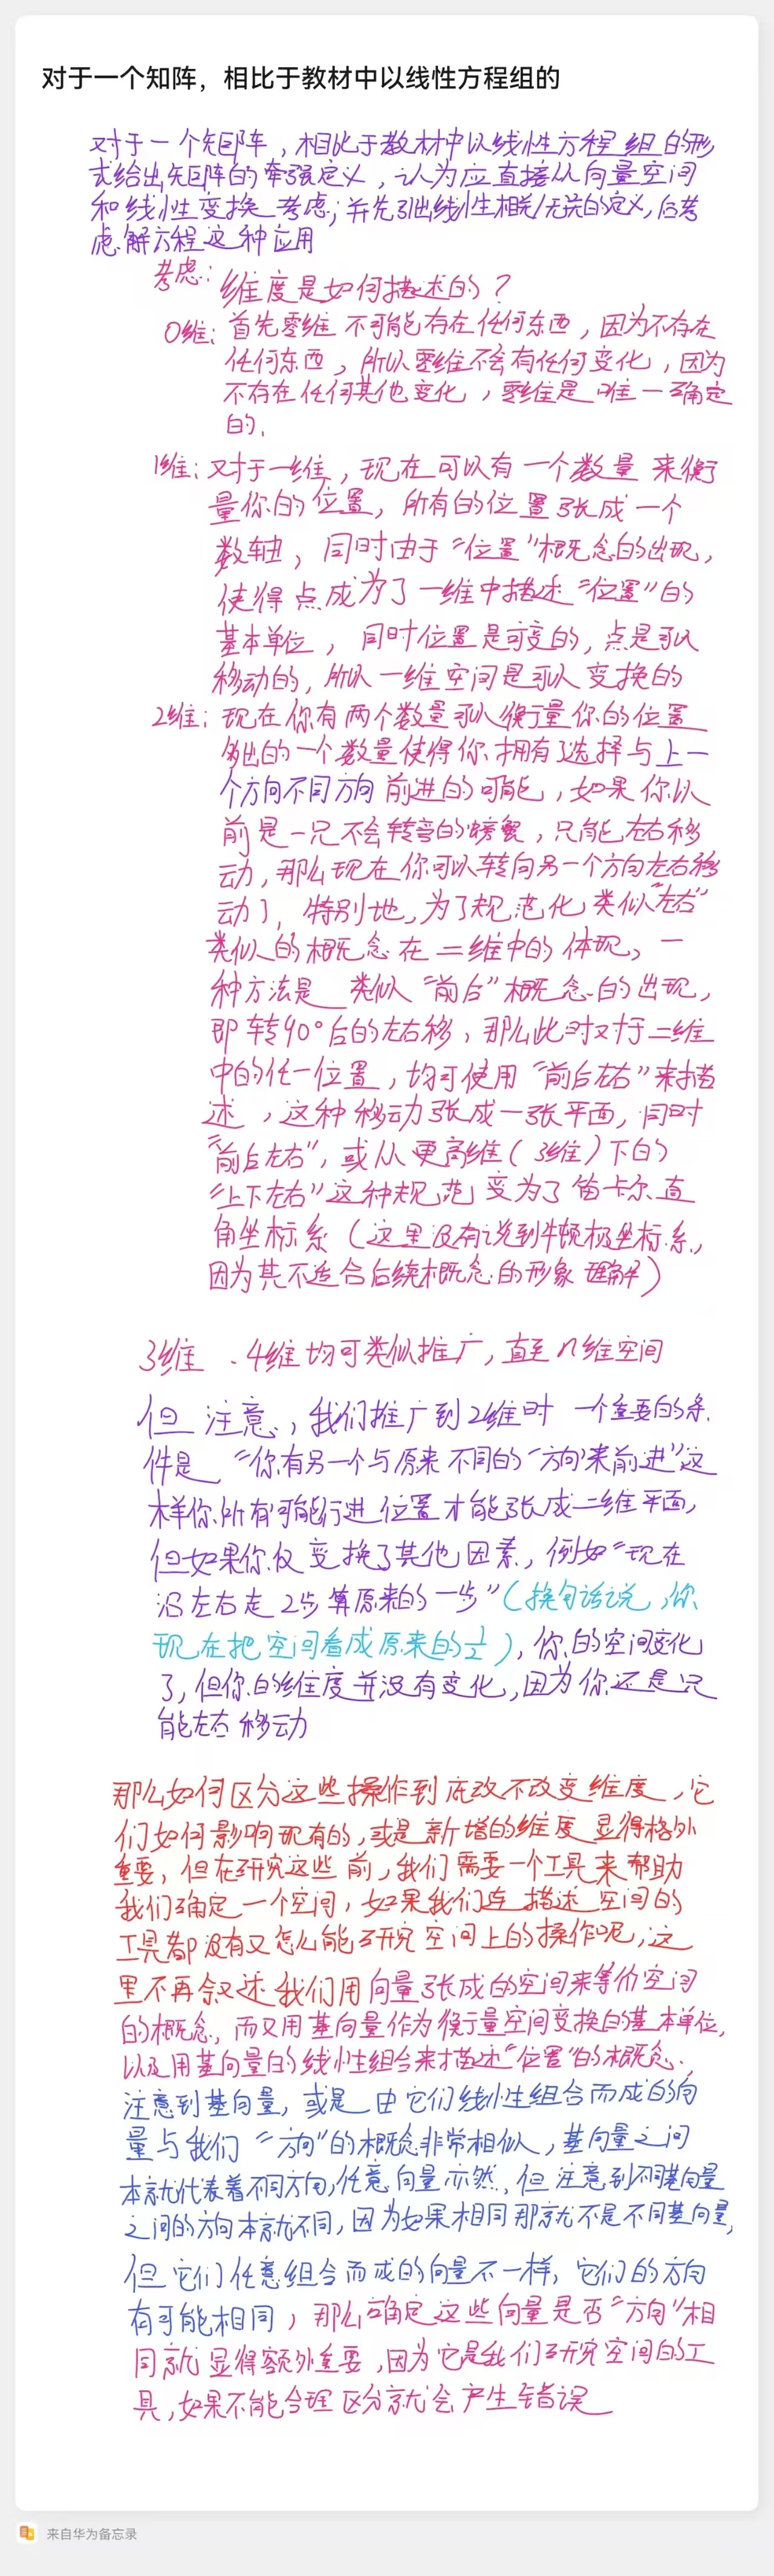 对于一个知阵，相比于教材中以线性方程组的
对于一个矩阵，相比于教材中以线性方程组的形
式给出矩阵的牵强定义，认为应直接从向量空间
和线性变换考虑；并先引出线性相关/无关的定义，后考
虑解方程这种应用
考虑：维度是如何描述的？
0维：首先零维不可能存在任何东西，因为不存在
任何东西，所以零维不会有任何变化，因为
不存在任何其他变化，零维是唯一确定
的.
1维：对于一维，现在可以有一个数量来衡
量你的位置，所有的位置张成一个
数轴，同时由于“位置”概念的出现，
使得点成为了一维中描述“位置”的
基本单位，同时位置是可变的，点是可以
移动的，所以一维空间是可以变换的
2维：现在你有两个数量可以衡量你的位置
多出的一个数量使得你拥有了选择与上一
个方向不同方向前进的可能，如果你以
前是一只不会转弯的螃蟹，只能左右移
动，那么现在你可以转向另一个方向左右移
动），特别地，为了规范化类似“左右”
类似的概念在二维中的体现，一
种方法是类似“前后”概念的出现，
即转90°后的左右移，那么此时对于二维
中的任一位置，均可使用“前后左右”来描
述，这种移动张成一张平面，同时
“前后左右”，或从更高维（3维）下的
“上下左右”这种规范变为了笛卡尔直
角坐标系（这里没有说到牛顿极坐标系，
因为其不适合后续概念的形象理解）
3维、4维均可类似推广，直至n维空间
但注意，我们推广到2维时一个重要的条
件是“你有另一个与原来不同的“方向”来前进”这
样你所有可能行进位置才能张成二维平面，
但如果你仅变换了其他因素，例如“现在
沿左右走2步算原来的一步”（换句话说，你
现在把空间看成原来的1/2），你的空间变化
了，但你的维度并没有变化，因为你还是只
能左右移动
那么如何区分这些操作到底改不改变维度，它
们如何影响现有的，或是新增的维度显得格外
重要，但在研究这些前，我们需要一个工具来帮助
我们确定一个空间，如果我们连描述空间的
工具都没有又怎么能研究空间上的操作呢，这
里不再叙述我们用向量张成的空间来等价空间
的概念，而又用基向量作为衡量空间变换的基本单位，
以及用基向量的线性组合来描述“位置”的概念.
注意到基向量，或是由它们线性组合而成的向
量与我们“方向”的概念非常相似，基向量之间
本就代表着不同方向，任意向量亦然，但注意到不同基向量
之间的方向本就不同，因为如果相同那就不是不同基向量，
但它们任意组合而成的向量不一样，它们的方向
有可能相同，那么确定这些向量是否“方向”相
同就显得额外重要，因为它是我们研究空间的工
具，如果不能合理区分就会产生错误
来自华为备忘录